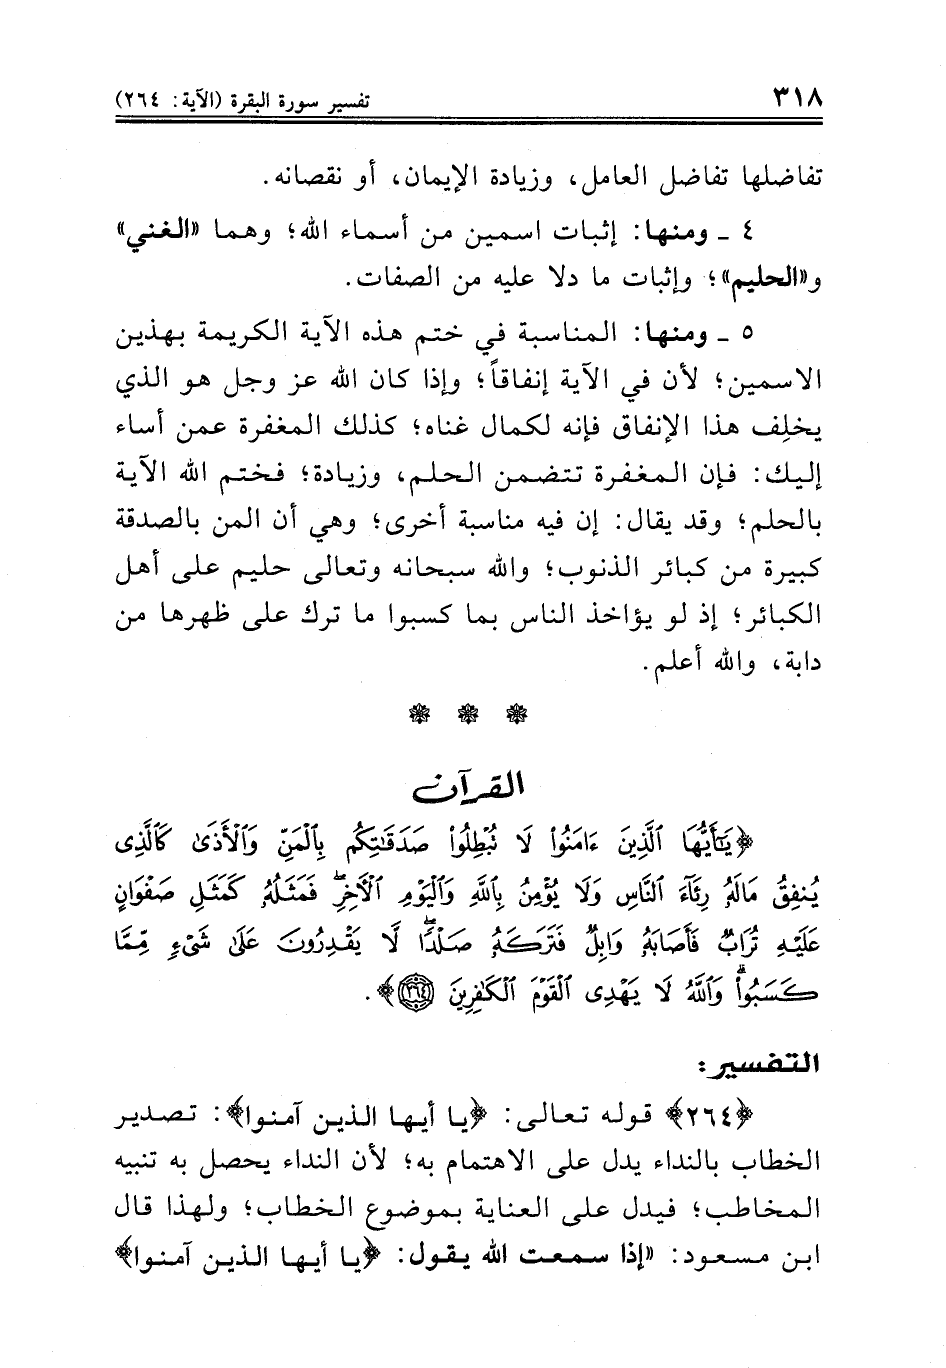 ٣١٨ تفسير سورة البقرة (الآية: ٢٦٤)
تفاضلها تفاضل العامل، وزيادة الإيمان، أو نقصانه.
٤ ـ ومنها: إثبات اسمين من أسماء الله؛ وهما «الغني»
و«الحليم»؛ وإثبات ما دلا عليه من الصفات.
٥ ـ ومنها: المناسبة في ختم هذه الآية الكريمة بهذين
الاسمين؛ لأن في الآية إنفاقاً؛ وإذا كان الله عز وجل هو الذي
يخلِف هذا الإنفاق فإنه لكمال غناه؛ كذلك المغفرة عمن أساء
إليك: فإن المغفرة تتضمن الحلم، وزيادة؛ فختم الله الآية
بالحلم؛ وقد يقال: إن فيه مناسبة أخرى؛ وهي أن المن بالصدقة
كبيرة من كبائر الذنوب؛ والله سبحانه وتعالى حليم على أهل
الكبائر؛ إذ لو يؤاخذ الناس بما كسبوا ما ترك على ظهرها من
دابة، والله أعلم.
القرآن
﴿يَٰٓأَيُّهَا ٱلَّذِينَ ءَامَنُوا۟ لَا تُبْطِلُوا۟ صَدَقَٰتِكُم بِٱلْمَنِّ وَٱلْأَذَىٰ كَٱلَّذِى
يُنفِقُ مَالَهُۥ رِئَآءَ ٱلنَّاسِ وَلَا يُؤْمِنُ بِٱللَّهِ وَٱلْيَوْمِ ٱلْءَاخِرِ ۖ فَمَثَلُهُۥ كَمَثَلِ صَفْوَانٍ
عَلَيْهِ تُرَابٌ فَأَصَابَهُۥ وَابِلٌ فَتَرَكَهُۥ صَلْدًا ۖ لَّا يَقْدِرُونَ عَلَىٰ شَىْءٍ مِّمَّا
كَسَبُوا۟ ۗ وَٱللَّهُ لَا يَهْدِى ٱلْقَوْمَ ٱلْكَٰفِرِينَ ٢٦٤﴾.
التفسير:
﴿٢٦٤﴾ قوله تعالى: ﴿يا أيها الذين آمنوا﴾: تصدير
الخطاب بالنداء يدل على الاهتمام به؛ لأن النداء يحصل به تنبيه
المخاطب؛ فيدل على العناية بموضوع الخطاب؛ ولهذا قال
ابن مسعود: «إذا سمعت الله يقول: ﴿يا أيها الذين آمنوا﴾